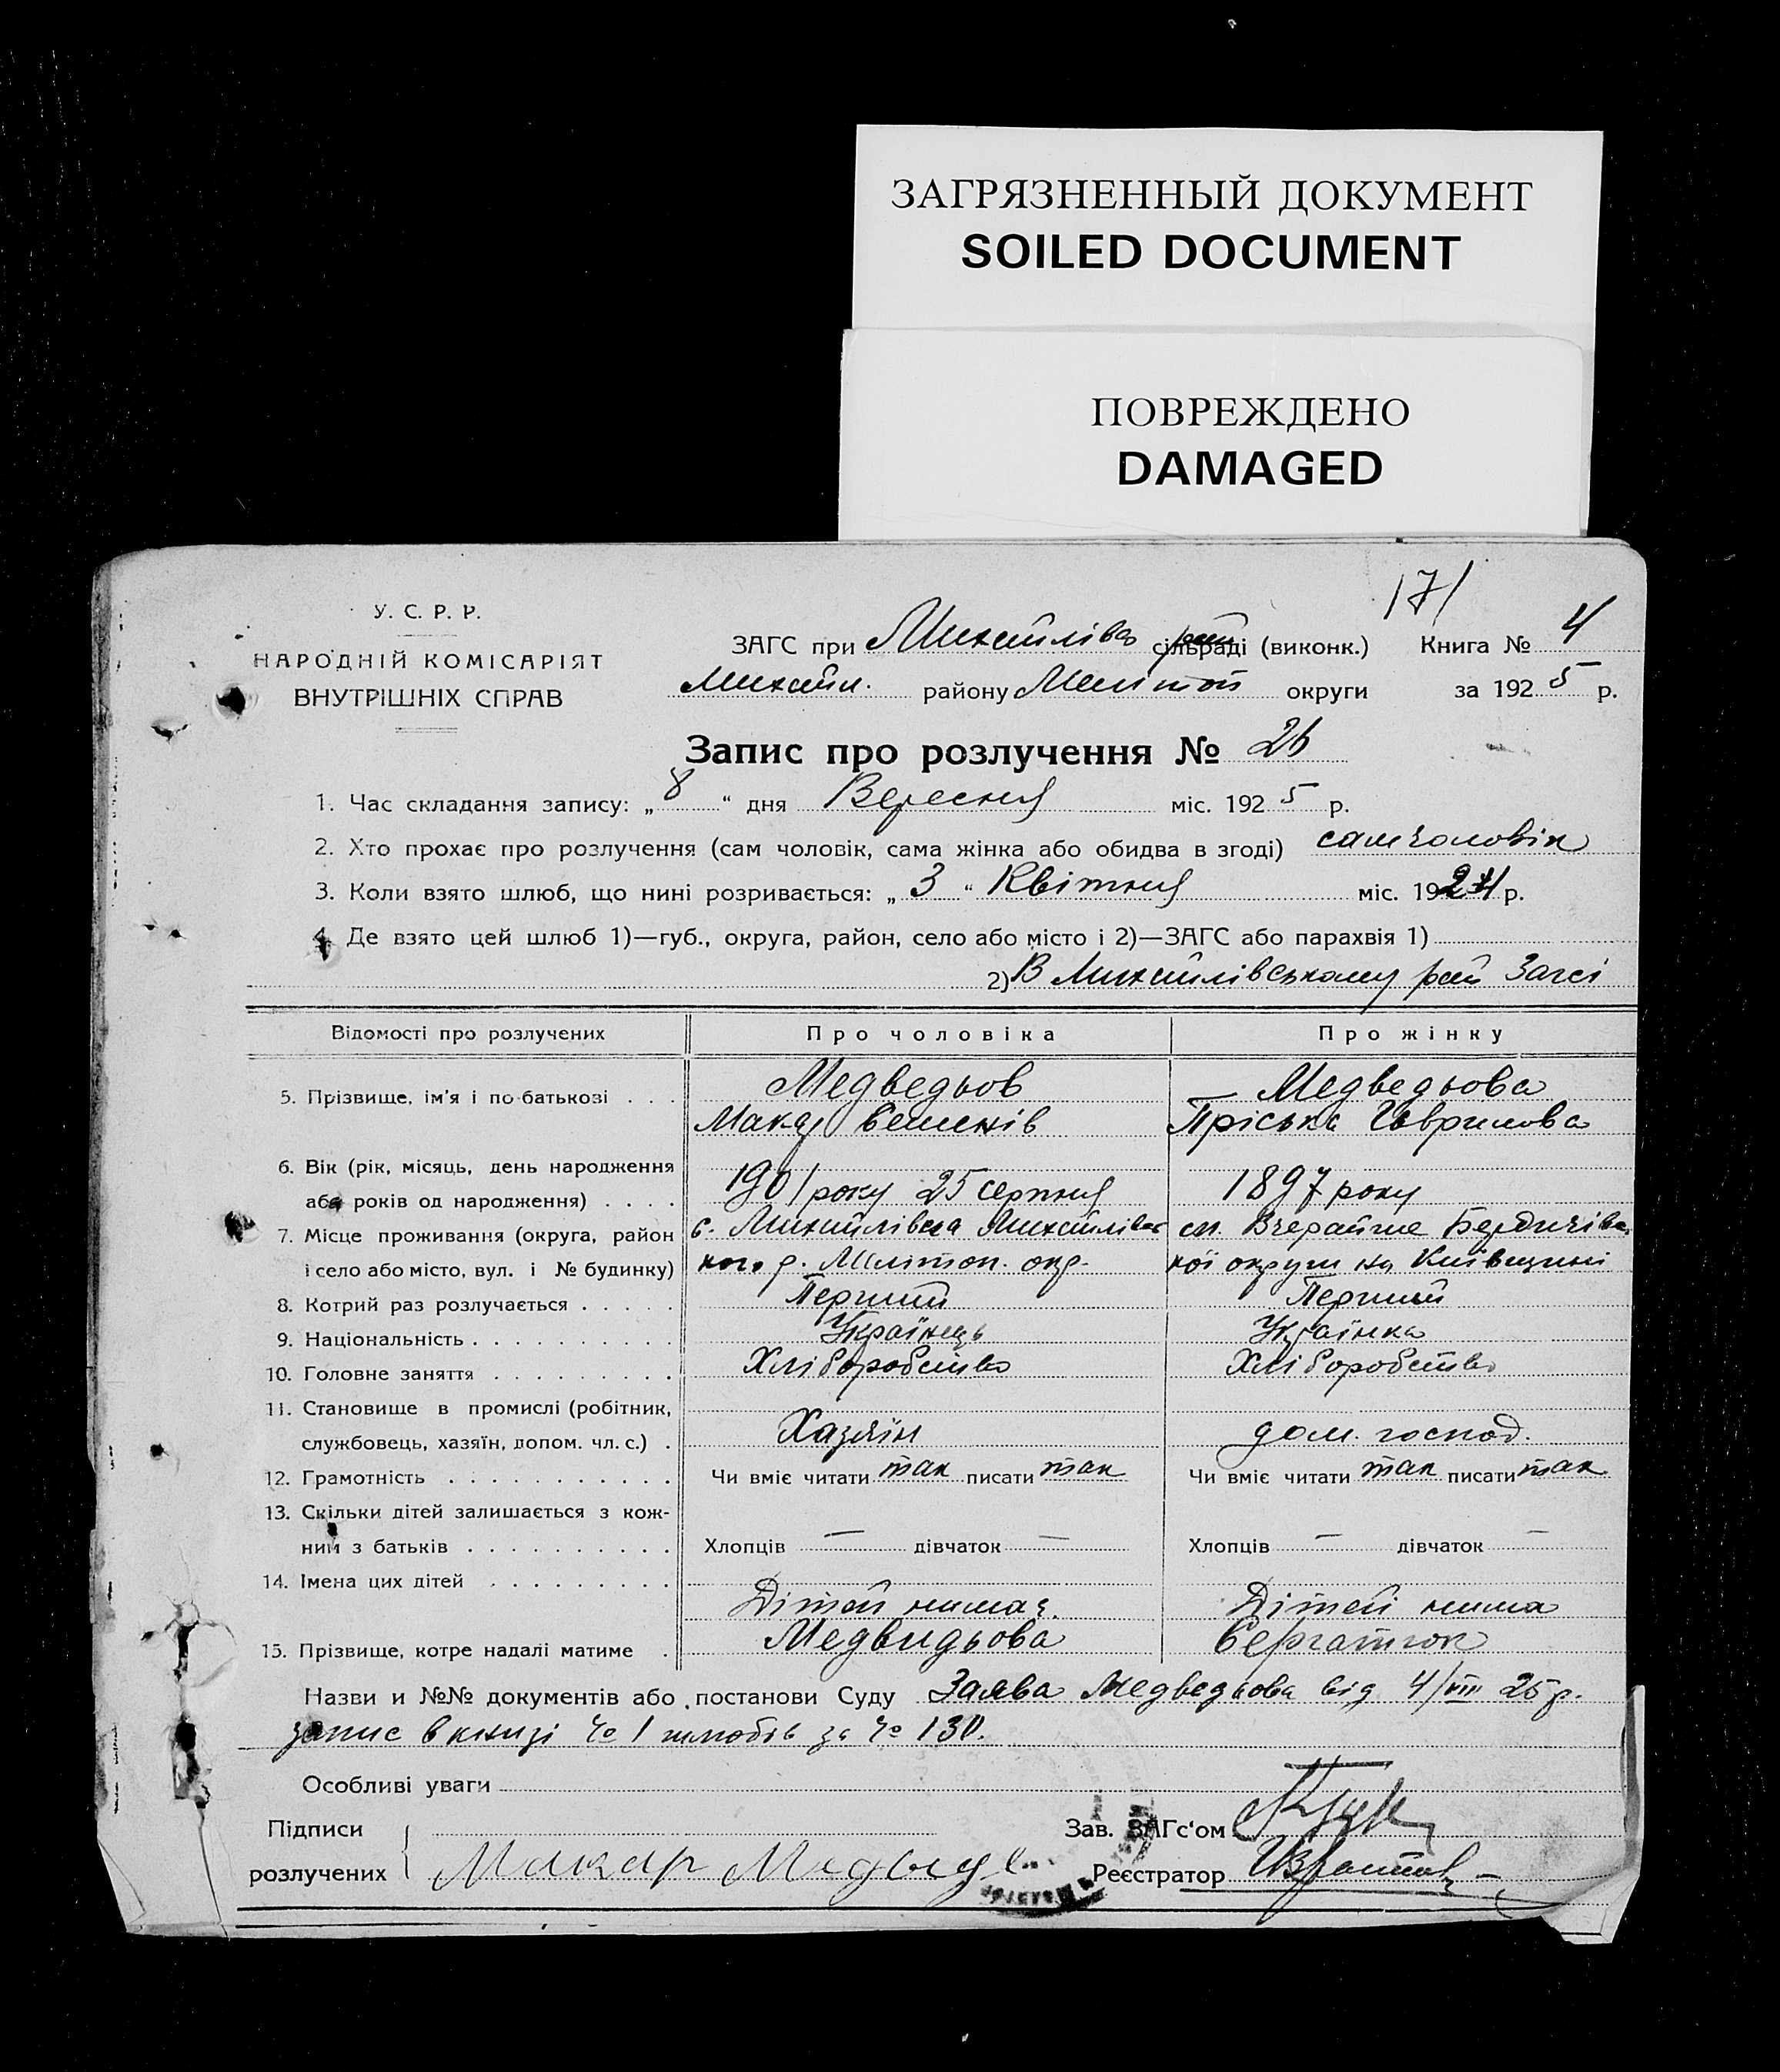 ЗАГРЯЗНЕННЫЙ ДОКУМЕНТ
SOILED DOCUMENT
ПОВРЕЖДЕНО
DAMAGED
171
У. С. Р. Р.
НАРОДНІЙ КОМІСАРІЯТ
ВНУТРІШНІХ СПРАВ
ЗАГС при Михайлівс рай сільраді (виконк.) Книга № 4
Михайл. району Меліտоп округи за 1925 р.
Запис про розлучення № 26
1. Час складання запису: „ 8 “ дня Вересня міс. 1925 р.
2. Хто прохає про розлучення (сам чоловік, сама жінка або обидва в згоді) сам чоловік
3. Коли взято шлюб, що нині розривається: „ 3 “ Квітня міс. 1924 р.
4. Де взято цей шлюб 1)—губ., округа, район, село або місто і 2)—ЗАГС або парахвія 1)
2) В Михайлівському рай Загсі
Відомості про розлучених Про чоловіка Про жінку
5. Прізвище, ім'я і по-батькові . . . Медведьов Медведьова
Макар Семенів Пріська Гаврилова
6. Вік (рік, місяць, день народження
або років од народження) . . . . 1901 року 25 серпня 1897 року
7. Місце проживання (округа, район с. Михайлівка Михайлівс см. Вчерайше Бердичівс
і село або місто, вул. і № будинку) кого р. Меліտоп. окр. кої округи на Київщині
8. Котрий раз розлучається . . . . . Перший Перший
9. Національність . . . . . . . . . . Українець Українка
10. Головне заняття . . . . . . . . . Хліборобство Хліборобство
11. Становище в промислі (робітник,
службовець, хазяїн, допом. чл. с.) . Хазяїн дом. господ.
12. Грамотність . . . . . . . . . . . Чи вміє читати так писати так Чи вміє читати так писати так
13. Скільки дітей залишається з кож-
ним з батьків . . . . . . . . . . Хлопців — дівчаток — Хлопців — дівчаток —
14. Імена цих дітей . . . . . . . . .
Дітей нима Дітей нима
15. Прізвище, котре надалі матиме . Медвидьова
Назви и №№ документів або постанови Суду Заява Медведьова від 4/VIII 25 р.
запис в книзі № 1 шлюбів за № 130.
Особливі уваги
Підписи Зав. ЗАГс'ом
розлучених Макар Реєстратор